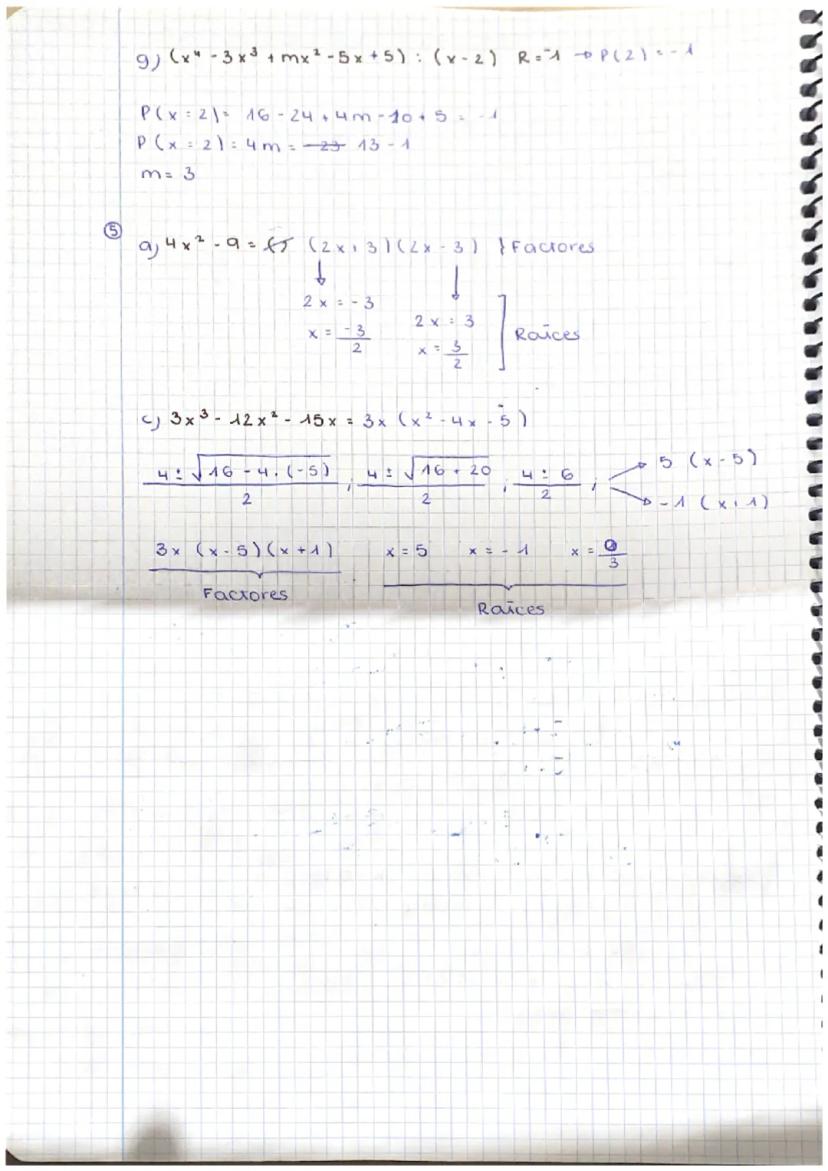 g) (x⁴ - 3x³ + mx² - 5x + 5) : (x - 2) R = -1 → P(2) = -1
P(x = 2) = 16 - 24 + 4m - 10 + 5 = -1
P(x = 2) = 4m = 13 - 1
m = 3
⑤
a) 4x² - 9 = (2x + 3)(2x - 3) } Factores
2x = -3
2x = 3
x = -3/2
x = 3/2
] Raíces
c) 3x³ - 12x² - 15x = 3x (x² - 4x - 5)
(4 ± √(16 - 4 · (-5)))/2 ; (4 ± √(16 + 20))/2 ; (4 ± 6)/2 ; → 5 (x - 5)
→ -1 (x + 1)
3x (x - 5)(x + 1) x = 5 x = -1 x = 0/3
Factores
Raíces